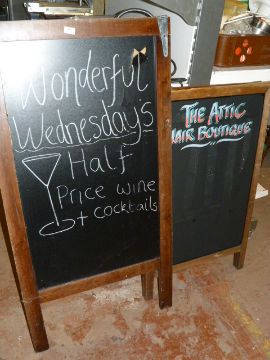 Wonderful
Wednesday's
Half
Price wine
+ cocktails
THE ATTIC
HAIR BOUTIQUE